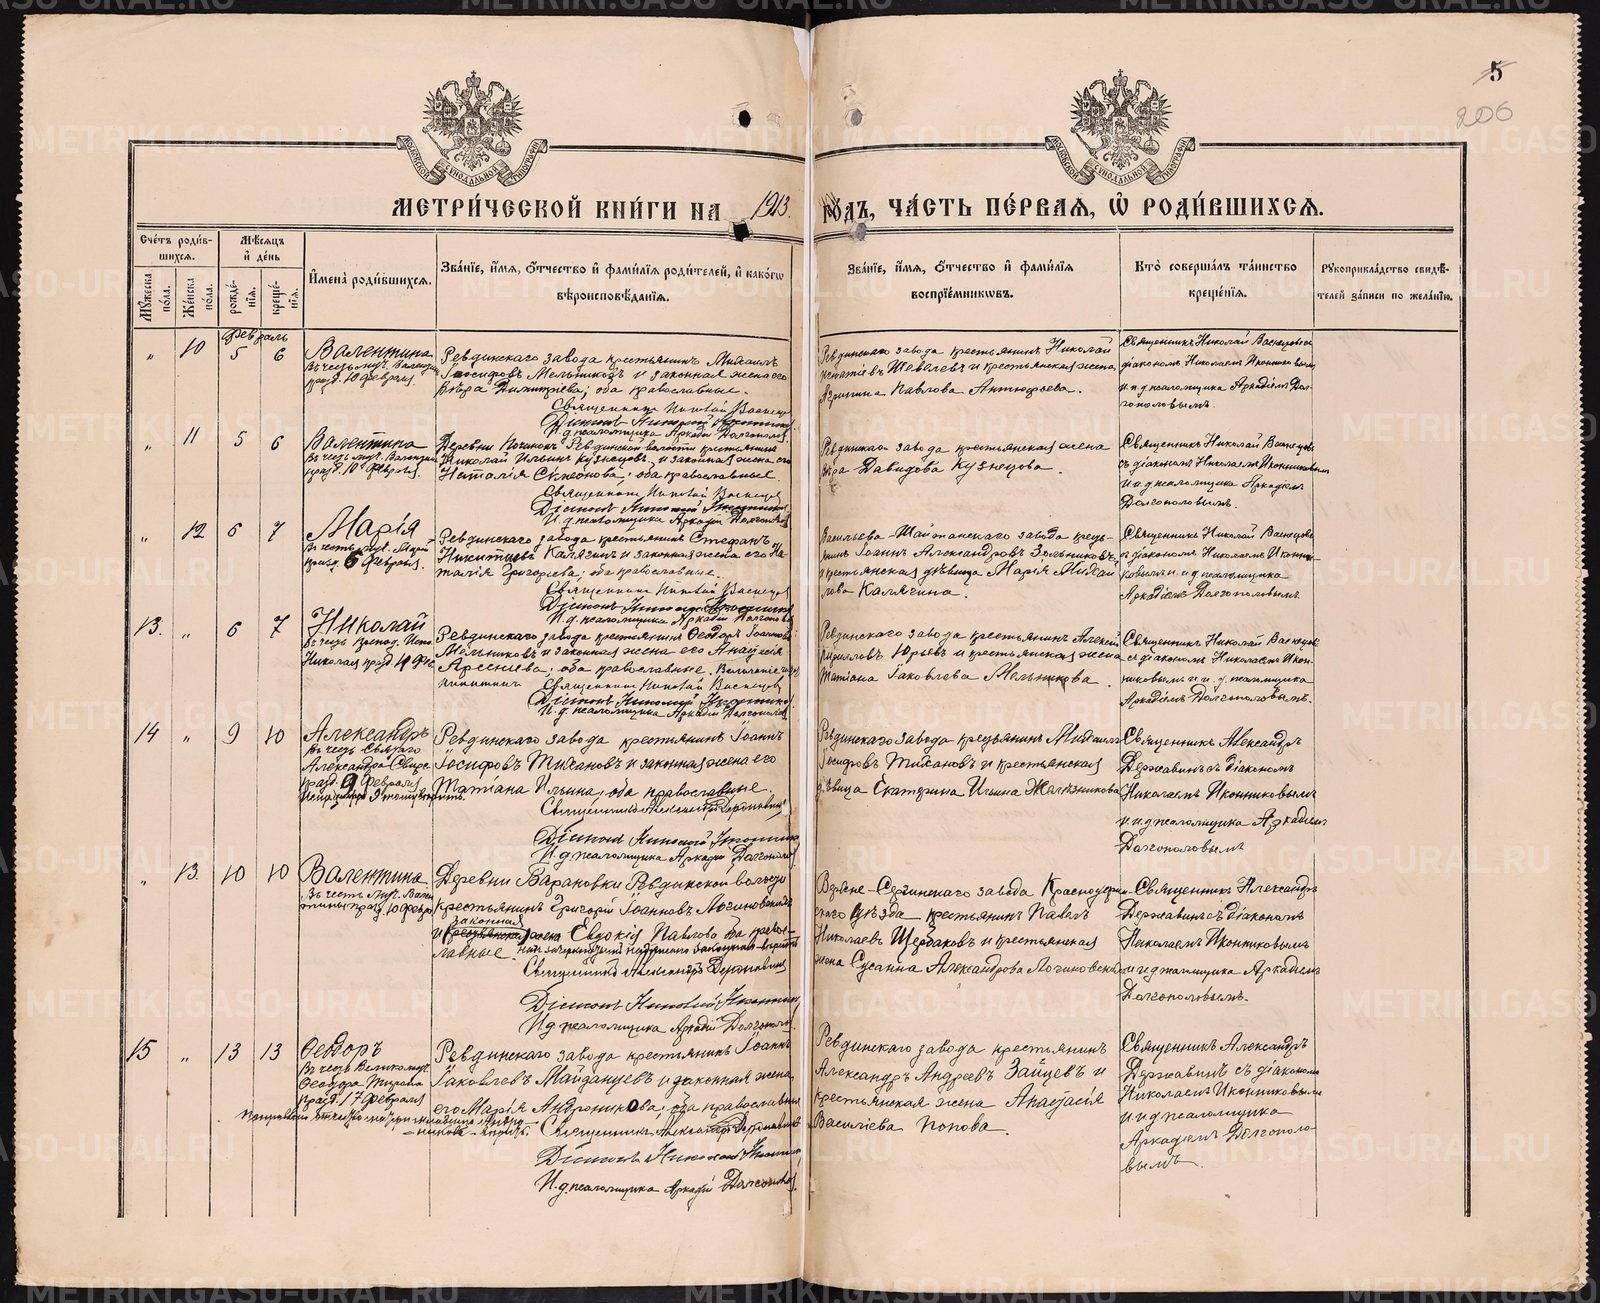 5
206
МЕТРИ́ЧЕСКОЙ КНИ́ГИ НА 1913.
ГО́ДЪ, ЧА́СТЬ ПЕ́РВАЯ, Ѡ РОДИ́ВШИХСЯ.
Сче́тъ роди́вшихся.
Мѣ́сяцъ и҆ де́нь
Му́жеска по́ла.
Же́нска по́ла.
рожде́нїя.
креще́нїя.
И҆мена̀ роди́вшихся.
Зва́нїе, и҆́мя, ѻ҆́тчество и҆ фами́лїѧ роди́телей, и҆ како́гѡ
вѣроисповѣ́данїѧ.
Зва́нїе, и҆́мя, ѻ҆́тчество и҆ фами́лїѧ
воспрїе́мникѡвъ.
Кто̀ соверша́лъ та́инство
креще́нїѧ.
Рꙋкоприкла́дство свидѣ́-
телей за́писи по жела́нїю.
Февраль
„ 10 5 6
Валентина
празд. 10 февраля.
Ревдинскаго завода крестьянинъ Михаилъ
Іосифовъ Мельниковъ и законная жена его
Вѣра Димитріева; оба православные.
Священникъ Николай Васнецов
Діаконъ Николай Иконников
И. д. псаломщика Аркадій Долгополов
Ревдинскаго завода крестьянинъ Николай
Игнатіевъ Шевелевъ и крестьянская жена
Павлова Антюфьева.
Священникъ Николай Васнецовъ съ
діакономъ Николаемъ Иконниковым
и и. д. псаломщика Аркадіем Дол-
гополовымъ.
„ 11 5 6
Валентина
празд. 10 февраля
Деревни Починокъ Ревдинской волости крестьянинъ
Николай Ильинъ Кузнецовъ и законная жена его
Наталія Симеонова; оба православные.
Священникъ Николай Васнецов
Діаконъ Николай Иконников
И. д. псаломщика Аркадій Долгополов
Ревдинскаго завода крестьянская жена
Вѣра Давидова Кузнецова.
Священникъ Николай Васнецовъ
съ діакономъ Николаемъ Иконниковым
и и. д. псаломщика Аркадіемъ
Долгополовымъ.
„ 12 6 7
Марія
празд. 6 февраля.
Ревдинскаго завода крестьянинъ Стефанъ
Никитіевъ Калягинъ и законная жена его На-
талія Григорьева; оба православные.
Священникъ Николай Васнецов
Діаконъ Николай Иконников
И. д. псаломщика Аркадій Долгополов
Васильева-Шайтанскаго завода кресть-
янинъ Іоаннъ Александровъ Зольниковъ
и крестьянская дѣвица Марія Михай-
лова Калягина.
Священникъ Николай Васнецовъ
съ діакономъ Николаемъ Иконни-
ковымъ и и. д. псаломщика
Аркадіемъ Долгополовымъ.
13. „ 6 7
Николай
Ревдинскаго завода крестьянинъ Ѳеодоръ Іоанновъ
Мельниковъ и законная жена его Анисія
Арсеніева; оба православные.
Священникъ Николай Васнецов
Діаконъ Николай Иконников
И. д. псаломщика Аркадій Долгополов
Ревдинскаго завода крестьянинъ Алексій
Кирилловъ Юрьевъ и крестьянская жена
Татіана Іаковлева Мельникова.
Священникъ Николай Васнецовъ
съ діакономъ Николаемъ Икон-
никовымъ и и. д. псаломщика
Аркадіемъ Долгополовымъ.
14 „ 9 10
Александръ
Въ честь Святаго
Александра
празд. 9 февраля
Ревдинскаго завода крестьянинъ Іоаннъ
Іосифовъ Тихановъ и законная жена его
Татіана Ильина, оба православные.
Священникъ Александръ Державинъ
Діаконъ Николай Иконников
И. д. псаломщика Аркадій Долгополов
Ревдинскаго завода крестьянинъ Михаилъ
Іосифовъ Тихановъ и крестьянская
дѣвица Екатерина Ильина Желѣзникова
Священникъ Александръ
Державинъ съ діакономъ
Николаемъ Иконниковымъ
и и. д. псаломщика Аркадіем
Долгополовымъ
„ 13. 10 10
Валентина.
Деревни Барановки Ревдинской волости
крестьянинъ Григорій Іоанновъ Логиновскихъ
законная
и крестьянская жена Евдокія Павлова оба право-
славные.
Священникъ Александръ Державинъ
Діаконъ Николай Иконников
И. д. псаломщика Аркадій Долгополов
Верхне-Сергинскаго завода Красноуфим-
скаго уѣзда крестьянинъ Павелъ
Николаевъ Щербаковъ и крестьянская
жена Сусанна Александрова Логиновских
Священникъ Александръ
Державинъ съ діакономъ
Николаемъ Иконниковымъ
и и. д. псаломщика Аркадіемъ
Долгополовымъ.
15 „ 13 13
Ѳеодоръ
Въ честь Великомуч.
Ѳеодора Тирона
празд. 17 февраля
Ревдинскаго завода крестьянинъ Іоаннъ
Іаковлевъ Майданцевъ и законная жена
его Марія Андроникова; оба православные
Священникъ Александръ Державинъ
Діаконъ Николай Иконников
И. д. псаломщика Аркадій Долгополов.
Ревдинскаго завода крестьянинъ
Александръ Андреевъ Зайцевъ и
крестьянская жена Анастасія
Васильева Попова.
Священникъ Александръ
Державинъ съ діакономъ
Николаемъ Иконниковымъ
и и. д. псаломщика
Аркадіемъ Долгополо-
вымъ.
METRIKI.GASO-URAL.RU